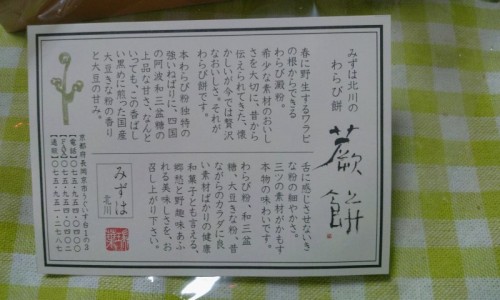 みずは北川の
わらび餅
蕨餅
春に野生するワラビ
の根からできる
わらび澱粉。
希少な素材のおいし
さを大切に、昔から
伝えられてきた、懐
かしいが今では贅沢
なおいしさ。それが
わらび餅です。
本わらび粉独特の
強いねばりに、四国
の阿波和三盆糖の
上品な甘さ、なんと
いっても、この香ばし
い黒めに煎った国産
大豆きな粉の香り
と大豆の甘み。
舌に感じさせないき
な粉の細やかさ。
三ツの素材がかもす
本物の味わいです。
わらび粉、和三盆
糖、大豆きな粉、昔
ながらのカラダに良
い素材ばかりの健康
和菓子とも言える。
郷愁と野趣味あふ
れる美味しさを、お
召し上がり下さい。
みずは
北川
京都府長岡京市うぐい す台1の3
電話〇七五・九五四・〇四〇〇
FAX〇七五・九五四・〇四〇二
通販〇七五・九五一・二七八七